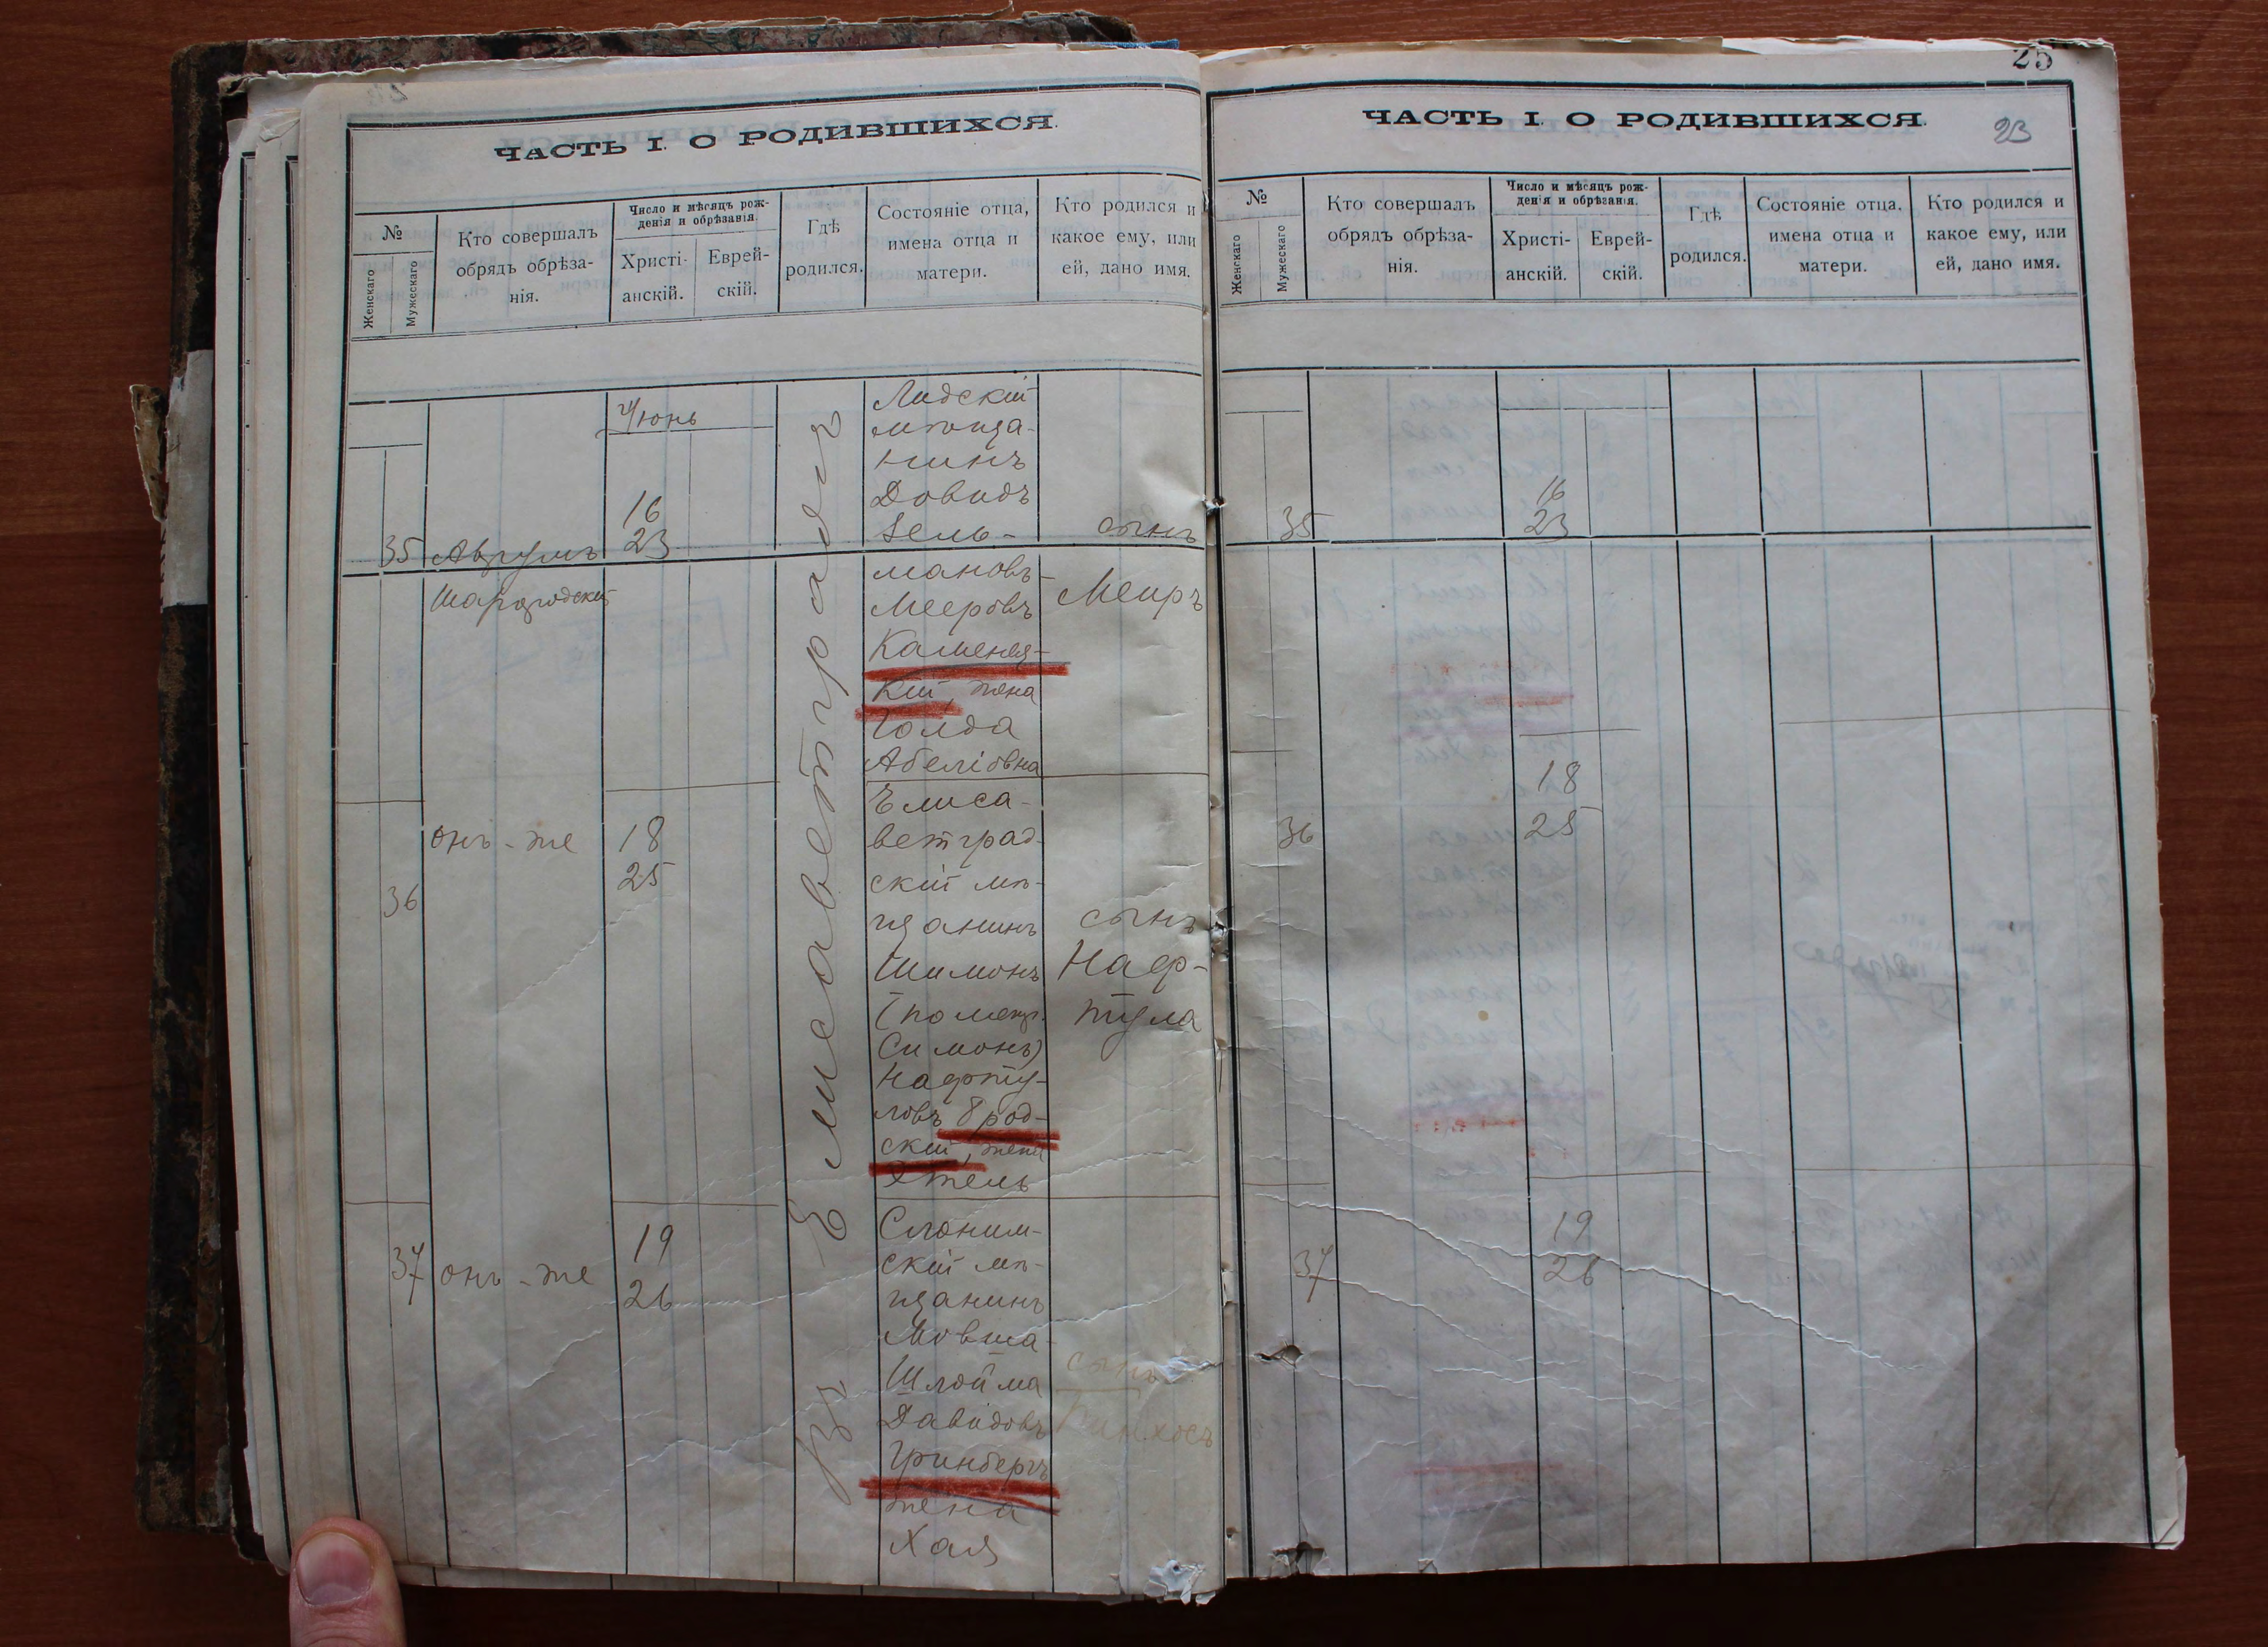 ЧАСТЬ I. О РОДИВШИХСЯ.
№
Женскаго
Мужескаго
Кто совершалъ
обрядъ обрѣза-
нія.
Число и мѣсяцъ рож-
денія и обрѣзанія.
Христі-
анскій.
Еврей-
скій.
Гдѣ
родился.
Состояніе отца,
имена отца и
матери.
Кто родился и
какое ему, или
ей, дано имя.
Июнь
35
Аврумъ
Шаргродскій
16
23
Въ Елисаветградѣ
Лидскій
мѣща-
нинъ
Довидъ
Зель-
мановъ-
Мееровъ
Каменец-
кій, жена
Голда
Абеліовна
сынъ
Меиръ
36
онъ-же
18
25
Елиса-
ветград-
скій мѣ-
щанинъ
Шимонъ
Симонъ)
Нафту-
ловъ Брод-
скій, жена
Этель
сынъ
Наф-
тула
37
онъ-же
19
26
Слоним-
скій мѣ-
щанинъ
Мовша-
Шлойма
Давидовъ
Гринбергъ
жена
Хая
сынъ
Пинхосъ
25
ЧАСТЬ I. О РОДИВШИХСЯ.
23
№
Женскаго
Мужескаго
Кто совершалъ
обрядъ обрѣза-
нія.
Число и мѣсяцъ рож-
денія и обрѣзанія.
Христі-
анскій.
Еврей-
скій.
Гдѣ
родился.
Состояніе отца,
имена отца и
матери.
Кто родился и
какое ему, или
ей, дано имя.
35
16
23
36
18
25
37
19
26